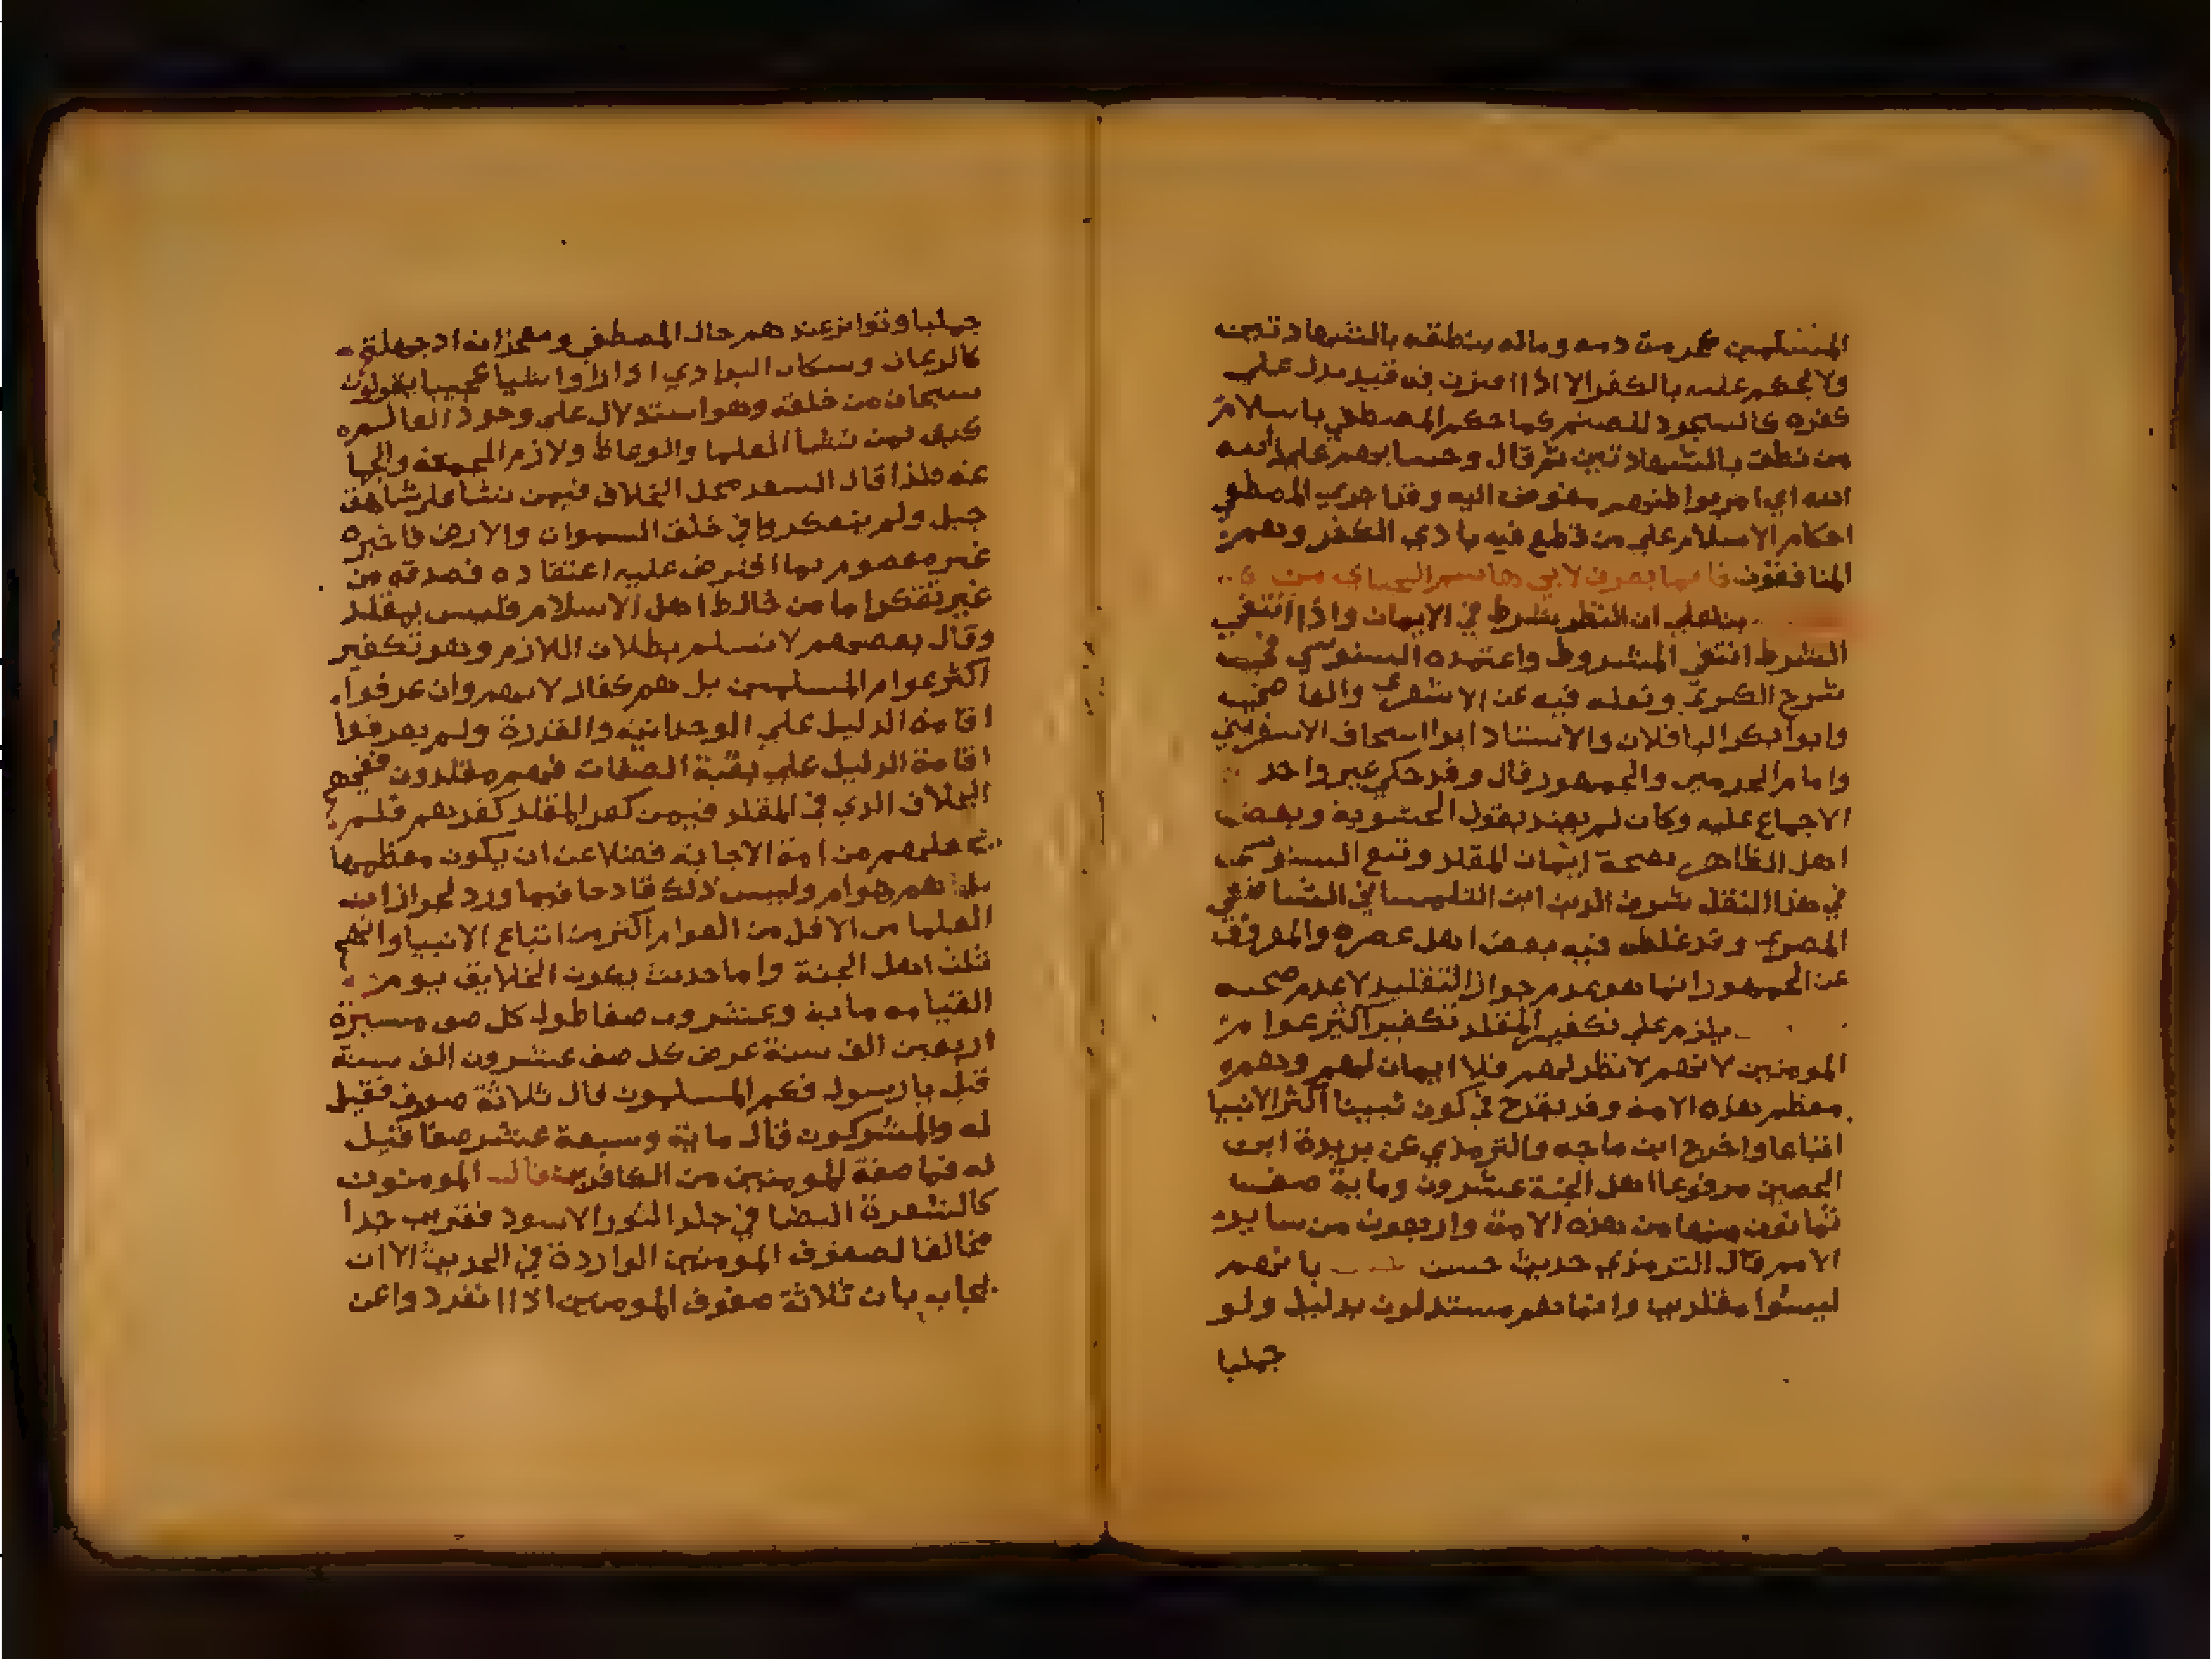 المسلمين محرمة دمه وماله بنطقه بالشهادتين
ولا يحكم عليه بالكفر الا اذا اقترن به قيد يدل علي
كفره كالسجود للصنم كما حكم المصطفي باسلام
من نطق بالشهادتين ثم قال وحسابهم علي الله
اي امر بواطنهم مفوض اليه وقد اجري المصطفي
احكام الاسلام علي من قطع فيه بادي الكفر وهم
المنافقون لابي هاشم الجباي من
بنا علي ان النظر شرط في الايمان واذا انتفي
الشرط انتفي المشروط واعتمده السنوسي في
شرح الكبري ونقله فيه عن الاشعري والقاضي
وابو ابكر الباقلان والاستاد ابوا اسحاق الاسفرايني
وامام الحرمين والجمهور قال وقد حكي غير واحد
الاجماع عليه وكان لم يعتد بقول الحشوية وبعض
اهل الظاهر بصحة ايمان المقلد وتبع السنوسي
في هذا النقل شرف الدين ابن التلمساني الشافعي
المصري وقد غلطه فيه بعض اهل عصره والمعروف
عن الجمهور انما هو عدم جواز التقليد لا عدم صحته
يلزم علي تكفير المقلد تكفير اكثر عوام
المومنين لانهم لا نظر لهم فلا ايمان لهم وهم
معظم هذه الامة وقد يقدح في كون نبينا اكثر الانبيا
اتباعا واخرج ابن ماجه والترمذي عن بريدة ابن
الحصين مرفوعا اهل الجنة عشرون وماية صف
ثمانون منها من هذه الامة واربعون من ساير
الامم قال الترمذي حديث حسن بانهم
ليسوا مقلدين وانما هم مستدلون بدليل ولو
جمليا
جمليا وتواتر عندهم حال المصطفي ومعجزاته اد جهلته
كالرعيان وسكان البوادي اذا راوا شيا عجيبا يقولون
سبحان من خلقه وهو استدلال علي وجود العالم
كيف بمن نشا العلما والوعاظ ولازم الجمعة والجما
عة ولذا قال السعد محل الخلاف فيمن نشا علي شاهق
جبل ولم يتفكر في خلق السموات والارض فاخبره
غير معصوم بما افترض عليه اعتقاده فصدقه من
غير تفكر اما من خالط اهل الاسلام فليس بمقلد
وقال بعضهم لا نسلم بطلان اللازم وهو تكفير
اكثر عوام المسلمين بل هم كفار لانهم وان عرفوا
اقامة الدليل علي الوحدانية والقدرة ولم يعرفوا
اقامة الدليل علي بقية الصفات فهم مقلدون ففيهم
الخلاف الذي في المقلد فيمن كفر المقلد كفرهم فلم
عليهم من امة الاجابة فضلا عن ان يكون معظمها
بل هم هوام وليس ذلك قادحا فيما ورد لجواز ان
العلما من الاقل من العوام اكثر من اتباع الانبيا وانهم
ثلث اهل الجنة واما حديث يكون الخلايق يوم
القيامه ماية وعشرون صفا طول كل صف مسيرة
اربعين الف سنة عرض كل صف عشرون الف سنة
قيل يا رسول فكم المسلمون قال ثلاثة صفوف فقيل
له والمشركون قال ماية وسبعة عشر صفا قيل
له فما صفة المومنين من الكافرين قال المومنون
كالشعرة البيضا في جلد الثور الاسود فغريب جدا
مخالف لصفوف المومنين الواردة في الحديث الا ان
يجاب بان ثلاثة صفوف المومنين اذا انفردوا عن